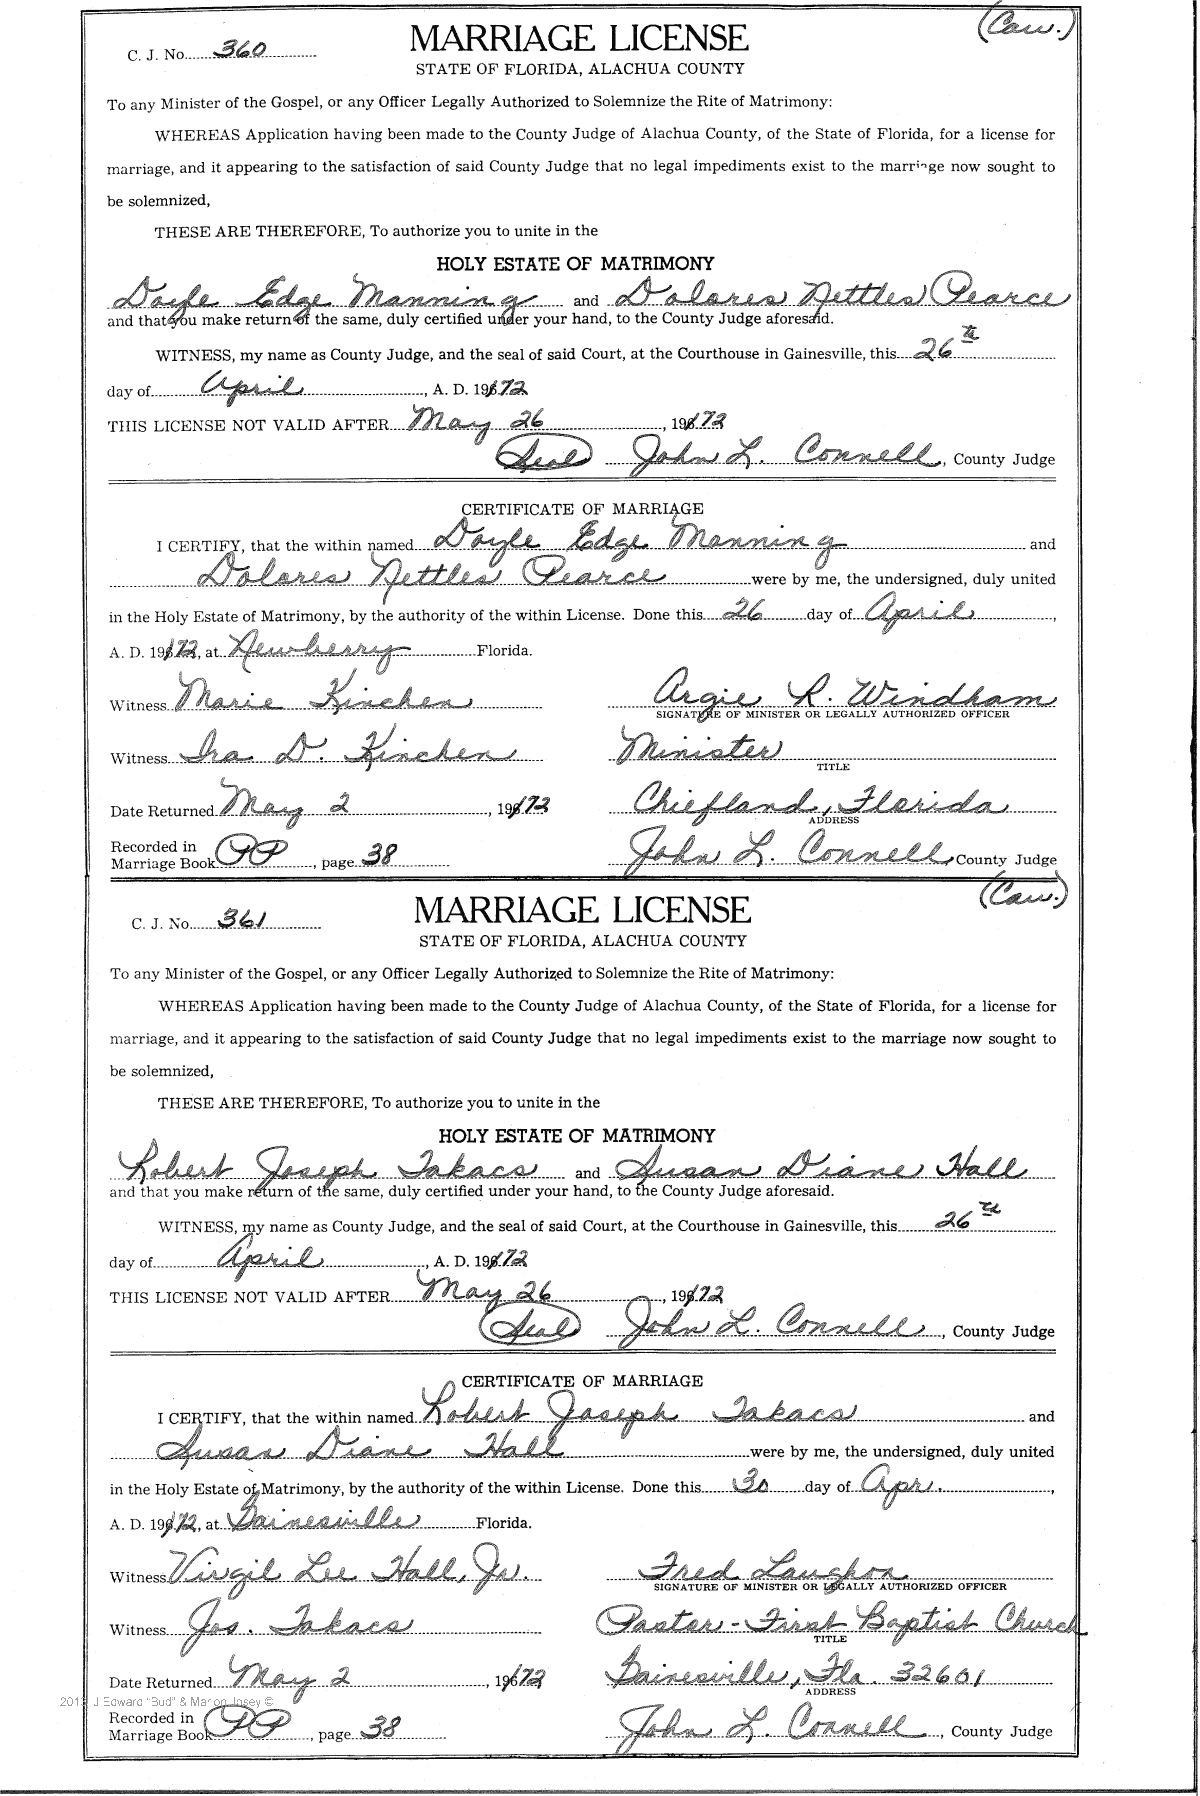 (Cau.)
C. J. No. 360 MARRIAGE LICENSE
STATE OF FLORIDA, ALACHUA COUNTY
To any Minister of the Gospel, or any Officer Legally Authorized to Solemnize the Rite of Matrimony:
WHEREAS Application having been made to the County Judge of Alachua County, of the State of Florida, for a license for
marriage, and it appearing to the satisfaction of said County Judge that no legal impediments exist to the marriage now sought to
be solemnized,
THESE ARE THEREFORE, To authorize you to unite in the
HOLY ESTATE OF MATRIMONY
Doyle Edge Manning and Dolores Nettles Pearce
and that you make return of the same, duly certified under your hand, to the County Judge aforesaid.
WITNESS, my name as County Judge, and the seal of said Court, at the Courthouse in Gainesville, this 26th
day of April, A. D. 1972
THIS LICENSE NOT VALID AFTER May 26, 1972
(Seal) John L. Connell, County Judge
CERTIFICATE OF MARRIAGE
I CERTIFY, that the within named Doyle Edge Manning and
Dolores Nettles Pearce were by me, the undersigned, duly united
in the Holy Estate of Matrimony, by the authority of the within License. Done this 26 day of April,
A. D. 1972, at Newberry Florida.
Witness Marie Kinchen Argie R. Windham
SIGNATURE OF MINISTER OR LEGALLY AUTHORIZED OFFICER
Witness Ira D. Kinchen Minister
TITLE
Date Returned May 2, 1972 Chiefland, Florida
ADDRESS
Recorded in
Marriage Book PP, page 38 John L. Connell, County Judge
(Cau.)
C. J. No. 361 MARRIAGE LICENSE
STATE OF FLORIDA, ALACHUA COUNTY
To any Minister of the Gospel, or any Officer Legally Authorized to Solemnize the Rite of Matrimony:
WHEREAS Application having been made to the County Judge of Alachua County, of the State of Florida, for a license for
marriage, and it appearing to the satisfaction of said County Judge that no legal impediments exist to the marriage now sought to
be solemnized,
THESE ARE THEREFORE, To authorize you to unite in the
HOLY ESTATE OF MATRIMONY
Robert Joseph Takacs and Susan Diane Hall
and that you make return of the same, duly certified under your hand, to the County Judge aforesaid.
WITNESS, my name as County Judge, and the seal of said Court, at the Courthouse in Gainesville, this 26th
day of April, A. D. 1972
THIS LICENSE NOT VALID AFTER May 26, 1972
(Seal) John L. Connell, County Judge
CERTIFICATE OF MARRIAGE
I CERTIFY, that the within named Robert Joseph Takacs and
Susan Diane Hall were by me, the undersigned, duly united
in the Holy Estate of Matrimony, by the authority of the within License. Done this 30 day of Apr.,
A. D. 1972, at Gainesville Florida.
Witness Virgil Lee Hall, Jr. Fred Laughon
SIGNATURE OF MINISTER OR LEGALLY AUTHORIZED OFFICER
Witness Jos. Takacs Pastor - First Baptist Church
TITLE
Date Returned May 2, 1972 Gainesville, Fla. 32601
ADDRESS
2013 J Edward "Bud" & Marion Josey ©
Recorded in
Marriage Book PP, page 38 John L. Connell, County Judge